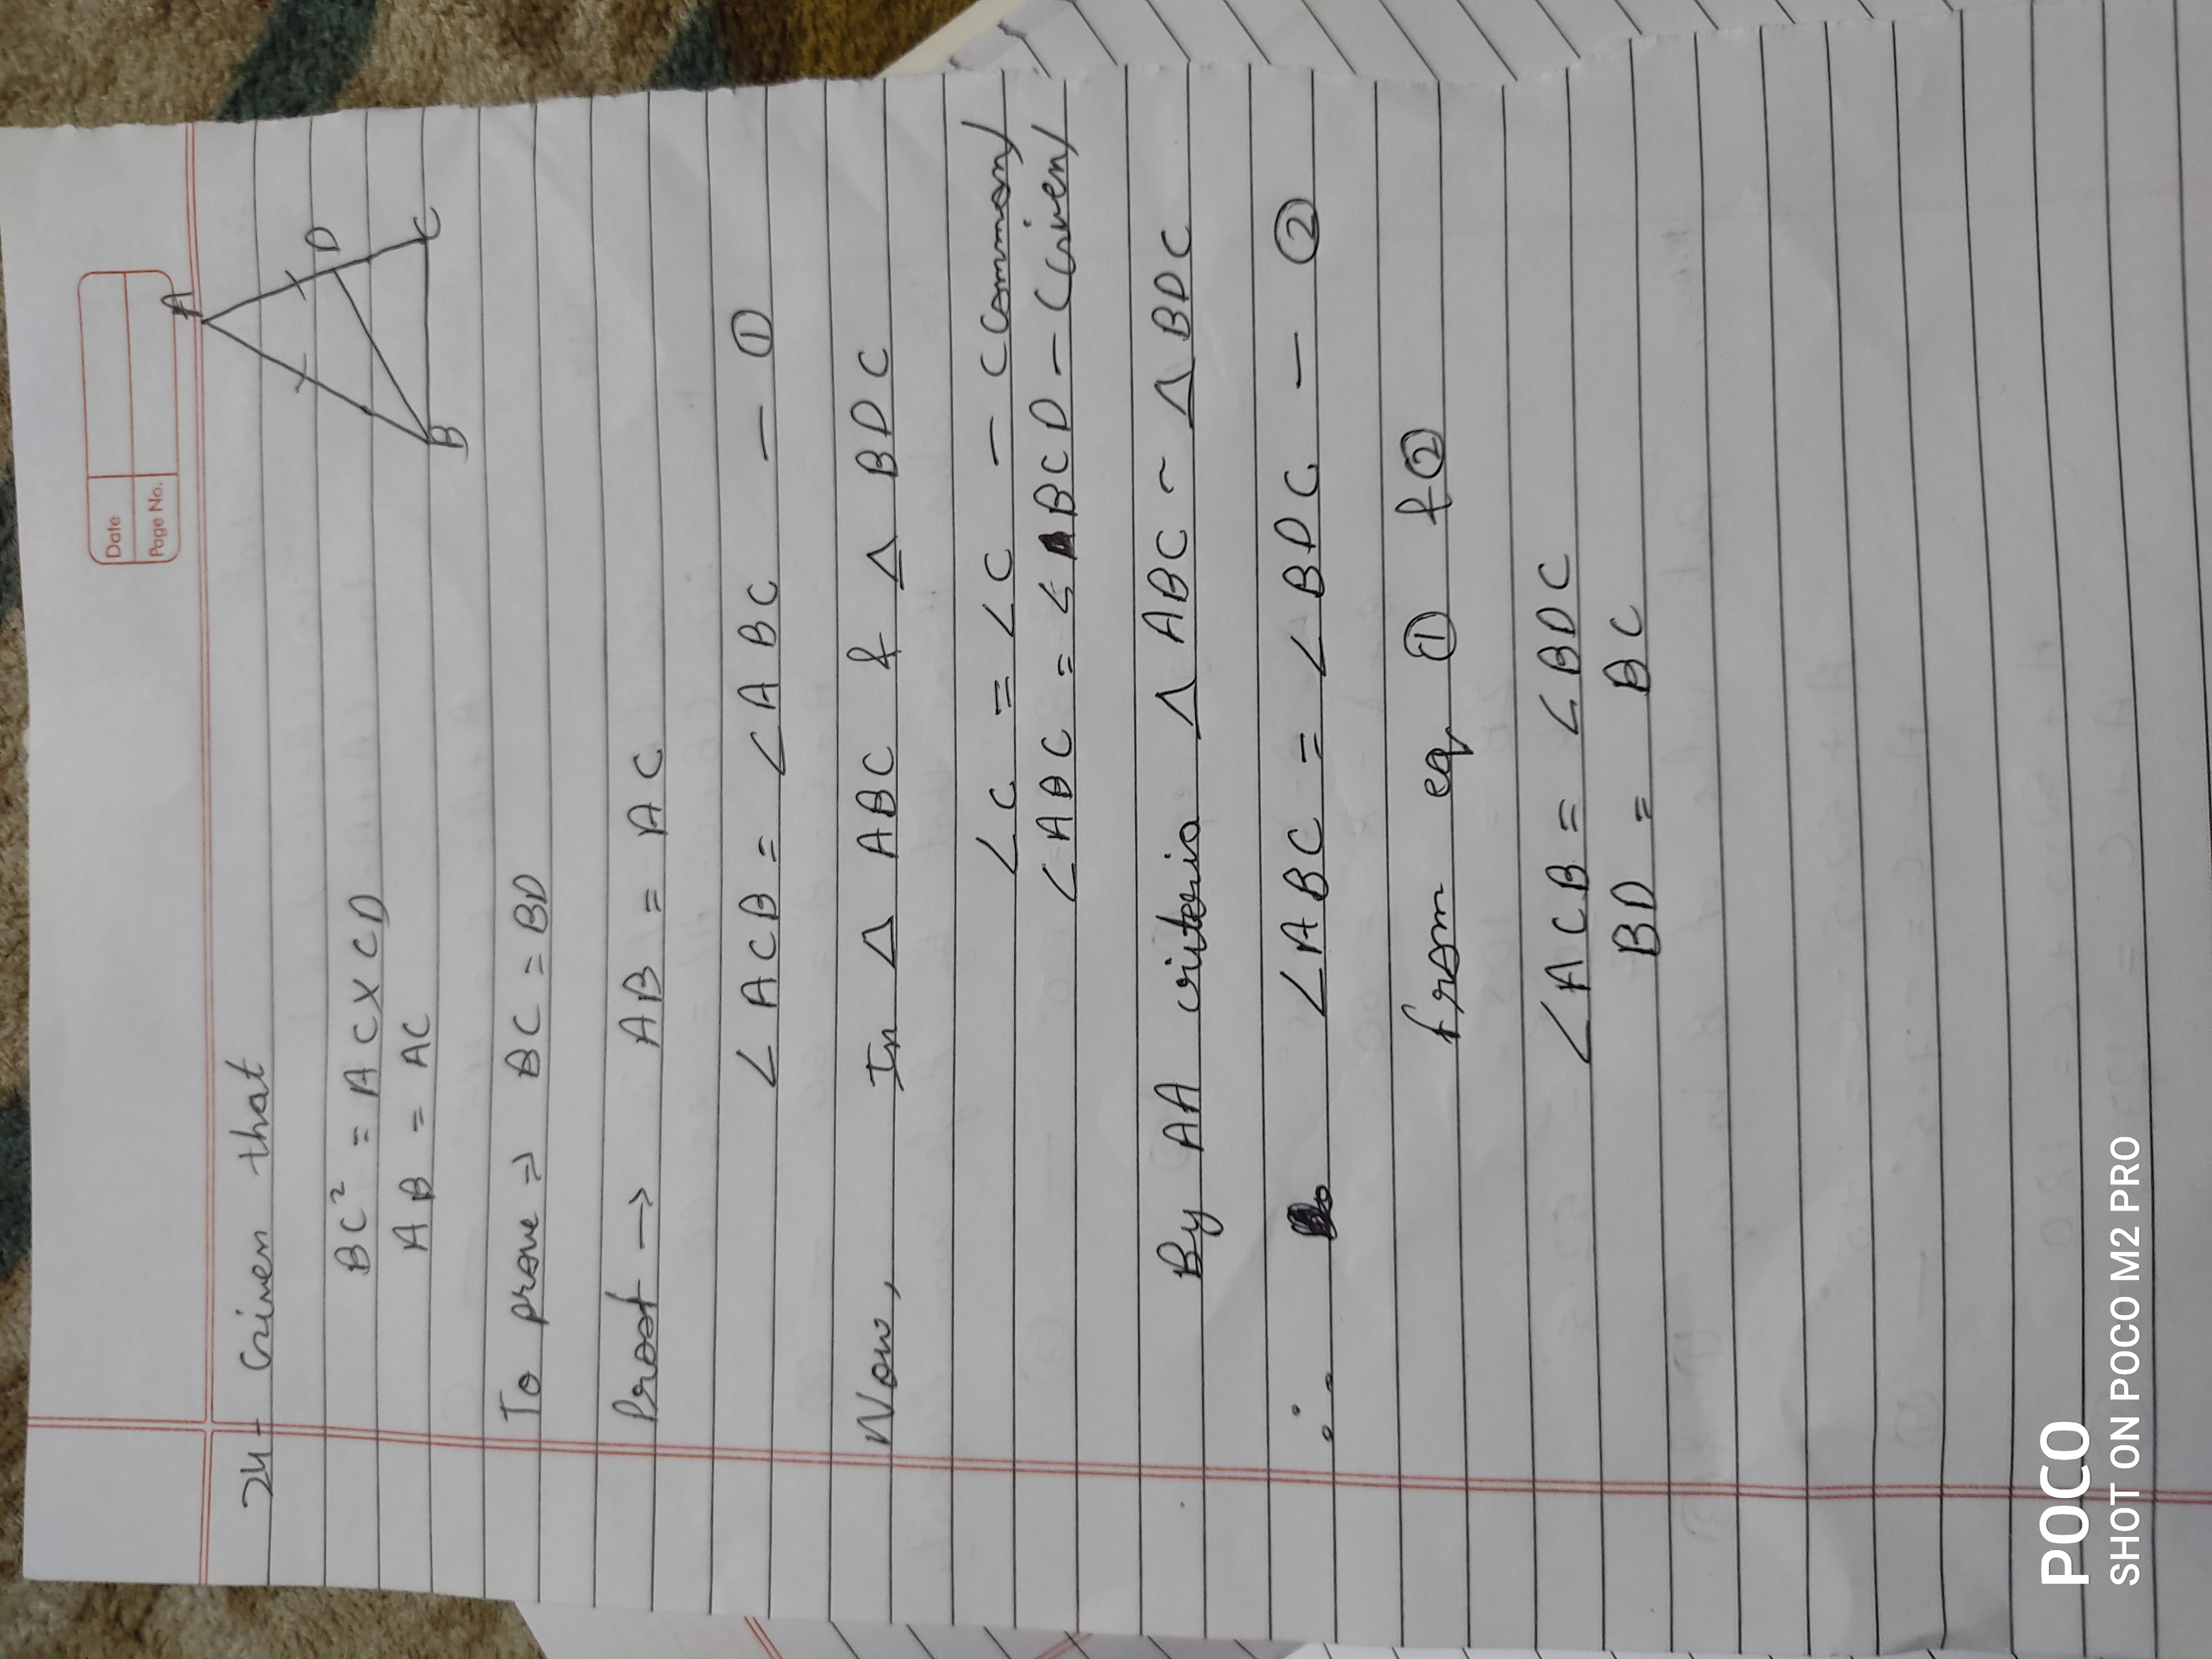 Date
Page No.
A
D
B
C
24- Given that
BC² = AC×CD
AB = AC
To prove ⇒ BC = BD
Proof → AB = AC
∠ACB = ∠ABC — ①
Now, In △ ABC & △ BDC
∠C = ∠C — (Common)
∠ABC = ∠BCD - (Given)
By AA criteria △ ABC ~ △ BDC
∴ ∠ABC = ∠BDC — ②
from eq ① & ②
∠ACB = ∠BDC
BD = BC
POCO
SHOT ON POCO M2 PRO